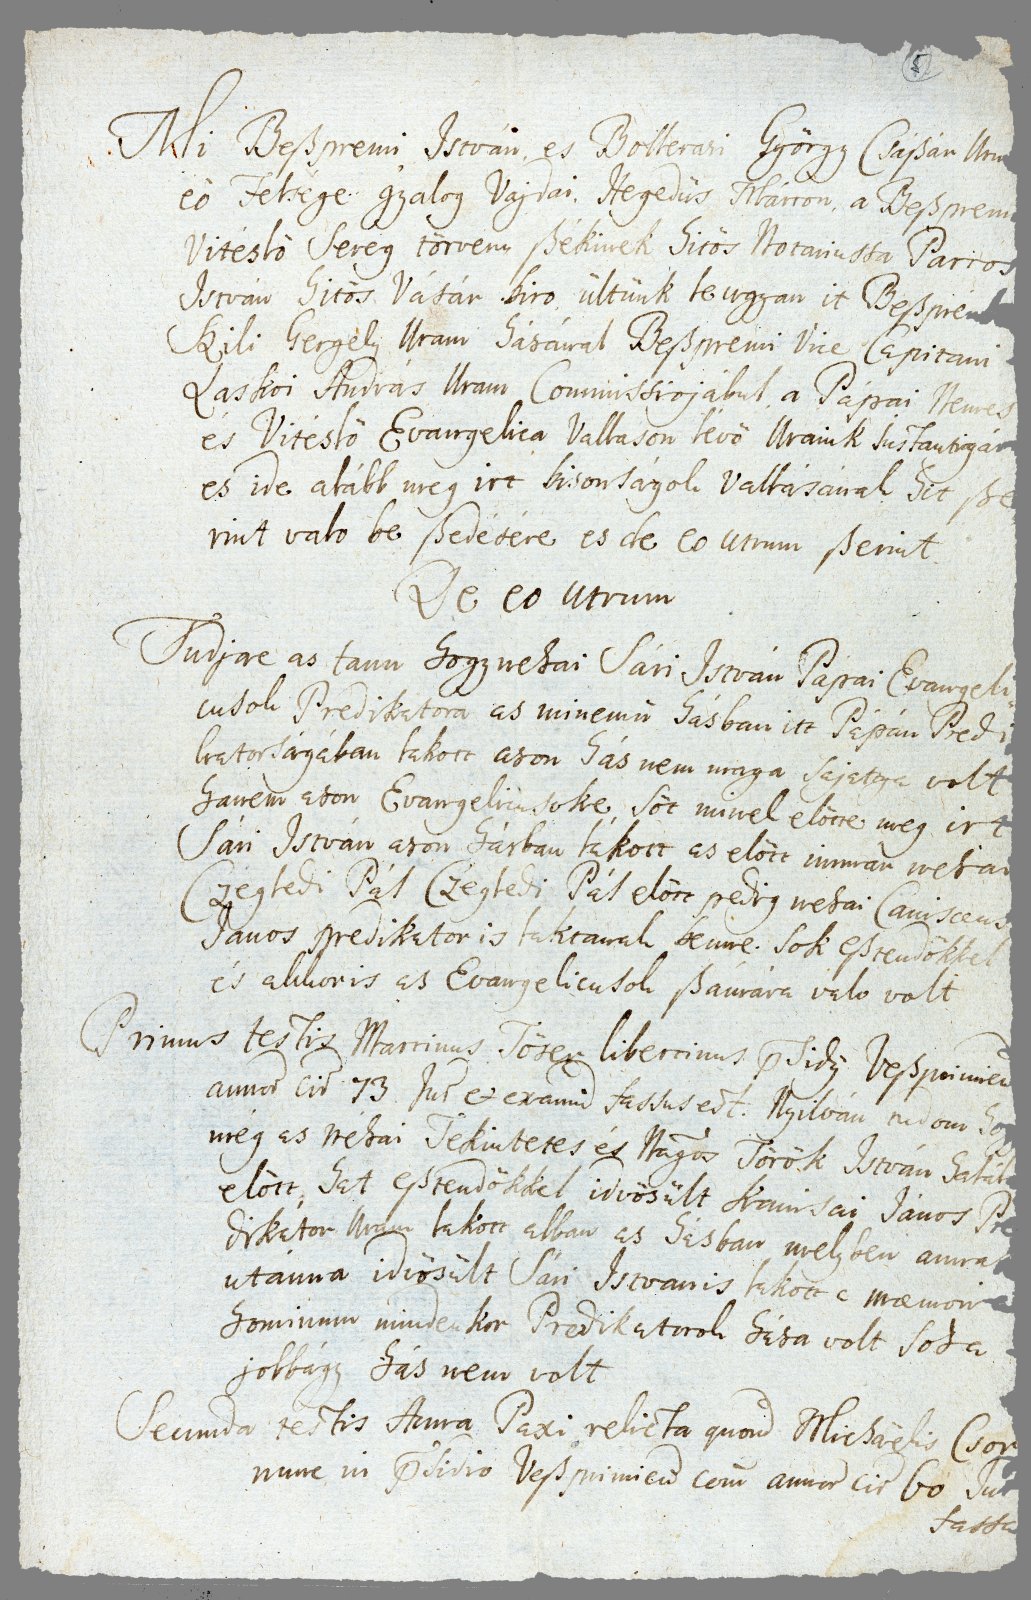 5
Mi Beßpremi István, es Bolterasi György Csàsár Uru
eö Felsége gyalog Vajdai. Hegedüs Márton, a Beßprem
Vitézlö Sereg törveny ßékinek hitös Notariussa Partos
István hitös Vásár biro, ültünk le ugyan it Beßprém
Kili Gergely Uram házánál Beßpremi Vice Capitani
Laskoi András Uram Commissiojábul, a Pápai Nemes
és Vitézlö Evangelica Vallason lévö Uraink Instantiájár
es ide alább meg irt bizonságok Vallásának hit ße
rint valo be ßedésére es de eo utrum ßerint
De eo utrum
Tudjae az tanu hogy nehai Sári István Pápai Evangeli
cusok Predikatora az minemü házban itt Pápán Predi
katorságában lakott azon ház nem maga sajattya volt
hanem azon Evangelicusoke, söt minel elötte meg irt
Sári István azon házban lakott az elött immár nehai
Czeglédi Pál Czeglédi Pál elött pedig nehai Canisaeus
János predikator is laktanak benne. Sok eßtendökkel
és akkoris az Evangelicusok ßámára valo volt
Primus testis Martinus Tözer libertinus p̄sidÿ Veßprimien
annor̄ cir̄ 73 Jur̄ et exami͞d fassus est. Nyilván tudom ho
még az néhai Tekintetes és Nagos Török István halál
elött, hat eßtendökkel idvösült Kanisai János Pre
dikátor Uram lakott abban az házban melyben annak
utánna idvösült Sári Istvanis lakott a memori
hominum mindenkor Predikatorok háza volt soha
jobbágy ház nem volt
Secunda testis Anna Paxi relicta quond Michäelis Csor
nunc in p̄sidio Veßprimien͞ com̄ annor̄ cir̄ 60 Jur
fassa